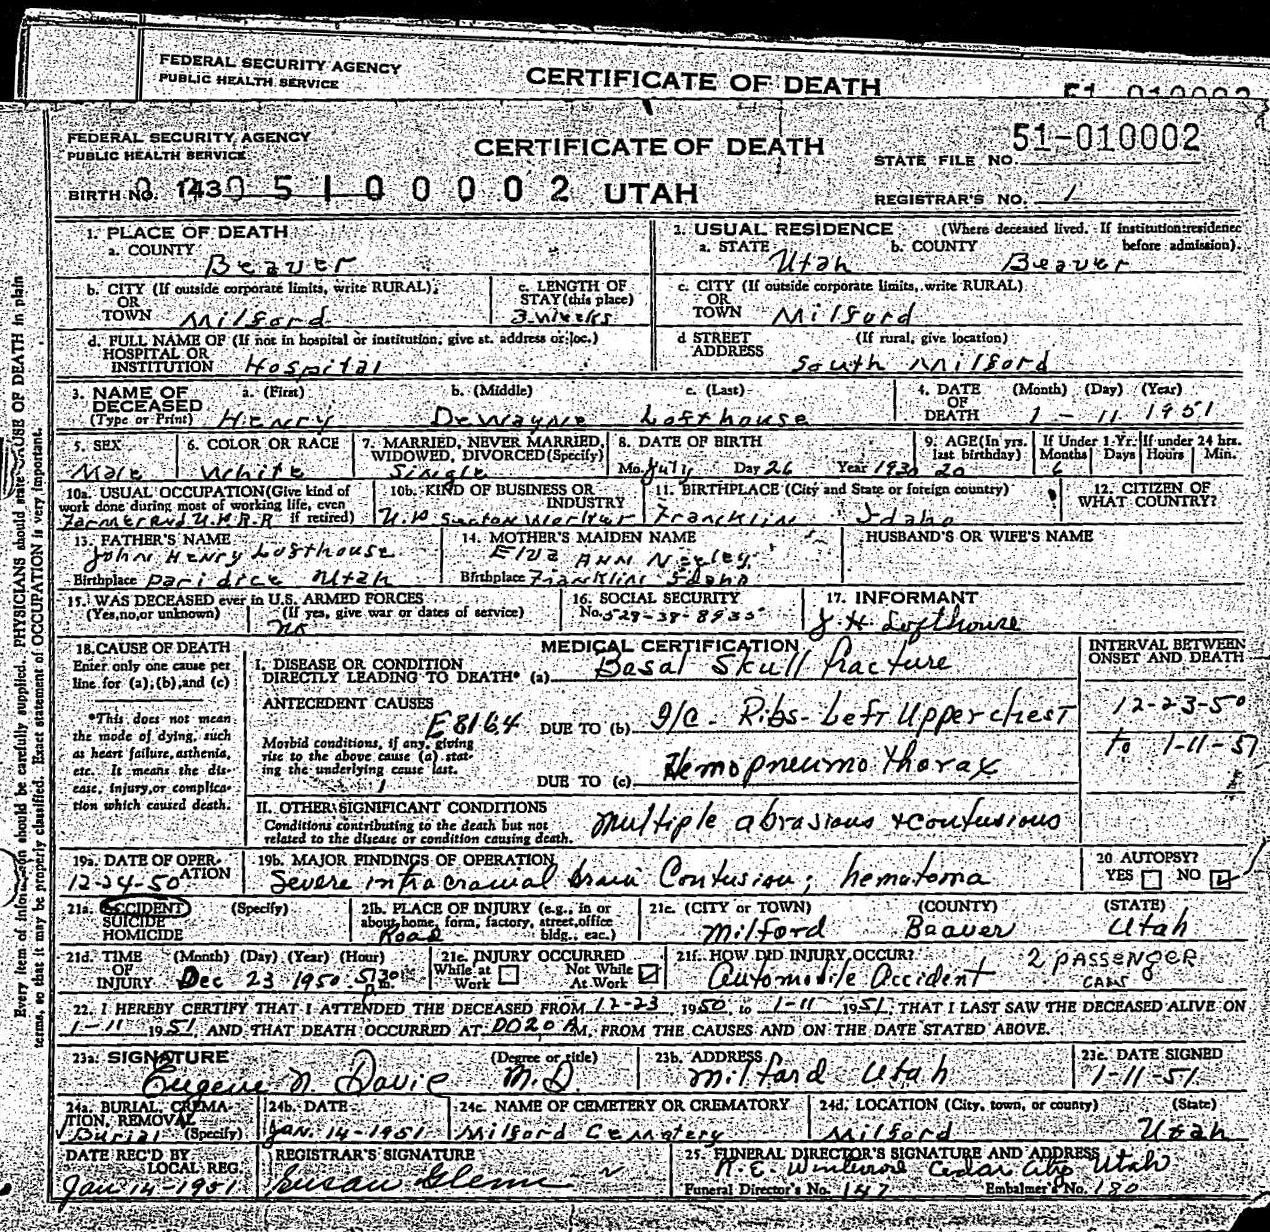 FEDERAL SECURITY AGENCY
PUBLIC HEALTH SERVICE
CERTIFICATE OF DEATH
51-010002
FEDERAL SECURITY AGENCY
PUBLIC HEALTH SERVICE
CERTIFICATE OF DEATH
STATE FILE NO. 51-010002
BIRTH NO. 143 0 5 1 0 0 0 0 2 UTAH
REGISTRAR'S NO. 1
1. PLACE OF DEATH
a. COUNTY
Beaver
2. USUAL RESIDENCE (Where deceased lived. If institution: residence before admission).
a. STATE Utah b. COUNTY Beaver
b. CITY (If outside corporate limits, write RURAL)
OR
TOWN Milford
c. LENGTH OF
STAY (this place)
3 weeks
c. CITY (If outside corporate limits, write RURAL)
OR
TOWN Milford
d. FULL NAME OF (If not in hospital or institution, give st. address or loc.)
HOSPITAL OR
INSTITUTION Hospital
d STREET (If rural, give location)
ADDRESS
South Milford
3. NAME OF DECEASED
(Type or Print)
a. (First) b. (Middle) c. (Last)
Henry DeWayne Lofthouse
4. DATE OF DEATH (Month) (Day) (Year)
1 - 11 1951
5. SEX
Male
6. COLOR OR RACE
White
7. MARRIED, NEVER MARRIED,
WIDOWED, DIVORCED (Specify)
Single
8. DATE OF BIRTH
Mo. July Day 26 Year 1930
9. AGE (In yrs. last birthday)
20
If Under 1 Yr. Months Days
6
If under 24 hrs. Hours Min.
10a. USUAL OCCUPATION (Give kind of
work done during most of working life, even
if retired)
Farmer and U.P.R.R
10b. KIND OF BUSINESS OR
INDUSTRY
U.P Worker
11. BIRTHPLACE (City and State or foreign country)
Franklin Idaho
12. CITIZEN OF
WHAT COUNTRY?
13. FATHER'S NAME
John Henry Lofthouse
Birthplace Paridice Utah
14. MOTHER'S MAIDEN NAME
Elva Ann Neeley
Birthplace Franklin Idaho
HUSBAND'S OR WIFE'S NAME
15. WAS DECEASED ever in U.S. ARMED FORCES
(Yes, no, or unknown) (If yes, give war or dates of service)
no
16. SOCIAL SECURITY
No. 528-38-8935
17. INFORMANT
J H Lofthouse
18. CAUSE OF DEATH
Enter only one cause per
line for (a), (b), and (c)
*This does not mean
the mode of dying, such
as heart failure, asthenia,
etc. It means the dis-
ease, injury, or complica-
tion which caused death.
MEDICAL CERTIFICATION
I. DISEASE OR CONDITION
DIRECTLY LEADING TO DEATH* (a) Basal Skull fracture
ANTECEDENT CAUSES
E8164
DUE TO (b) Ribs - Left Upper chest
Morbid conditions, if any, giving
rise to the above cause (a) stat-
ing the underlying cause last.
DUE TO (c) Hemopneumothorax
INTERVAL BETWEEN
ONSET AND DEATH
12-23-50
to 1-11-51
II. OTHER SIGNIFICANT CONDITIONS
Conditions contributing to the death but not
related to the disease or condition causing death.
multiple abrasions + contusions
19a. DATE OF OPER-
ATION
12-24-50
19b. MAJOR FINDINGS OF OPERATION
Severe intracranial brain Contusion; hematoma
20 AUTOPSY?
YES NO
21a. ACCIDENT (Specify)
SUICIDE
HOMICIDE
21b. PLACE OF INJURY (e.g., in or
about home, form, factory, street, office
bldg., eac.)
Road
21c. (CITY or TOWN) (COUNTY) (STATE)
Milford Beaver Utah
21d. TIME OF INJURY (Month) (Day) (Year) (Hour)
Dec 23 1950 5:30 p.m.
21e. INJURY OCCURRED
While at Work
Not While At Work
21f. HOW DID INJURY OCCUR?
Automobile Accident
2 PASSENGER
CARS
22. I HEREBY CERTIFY THAT I ATTENDED THE DECEASED FROM 12-23 1950 to 1-11 1951, THAT I LAST SAW THE DECEASED ALIVE ON
1-11 1951, AND THAT DEATH OCCURRED AT 0020 A M, FROM THE CAUSES AND ON THE DATE STATED ABOVE.
23a. SIGNATURE (Degree or title)
Eugene N. Davie M.D.
23b. ADDRESS
Milford Utah
23c. DATE SIGNED
1-11-51
24a. BURIAL, CREMA-
TION, REMOVAL
(Specify)
Burial
24b. DATE
Jan. 14-1951
24c. NAME OF CEMETERY OR CREMATORY
Milford Cemetery
24d. LOCATION (City, town, or county) (State)
Milford Utah
DATE REC'D BY
LOCAL REG.
Jan 14-1951
REGISTRAR'S SIGNATURE
Susan Glenn
25. FUNERAL DIRECTOR'S SIGNATURE AND ADDRESS
Cedar City Utah
Funeral Director's No. 147 Embalmer's No. 180
Every item of information should be carefully supplied. PHYSICIANS should state CAUSE OF DEATH in plain
terms, so that it may be properly classified. Exact statement of OCCUPATION is very important.